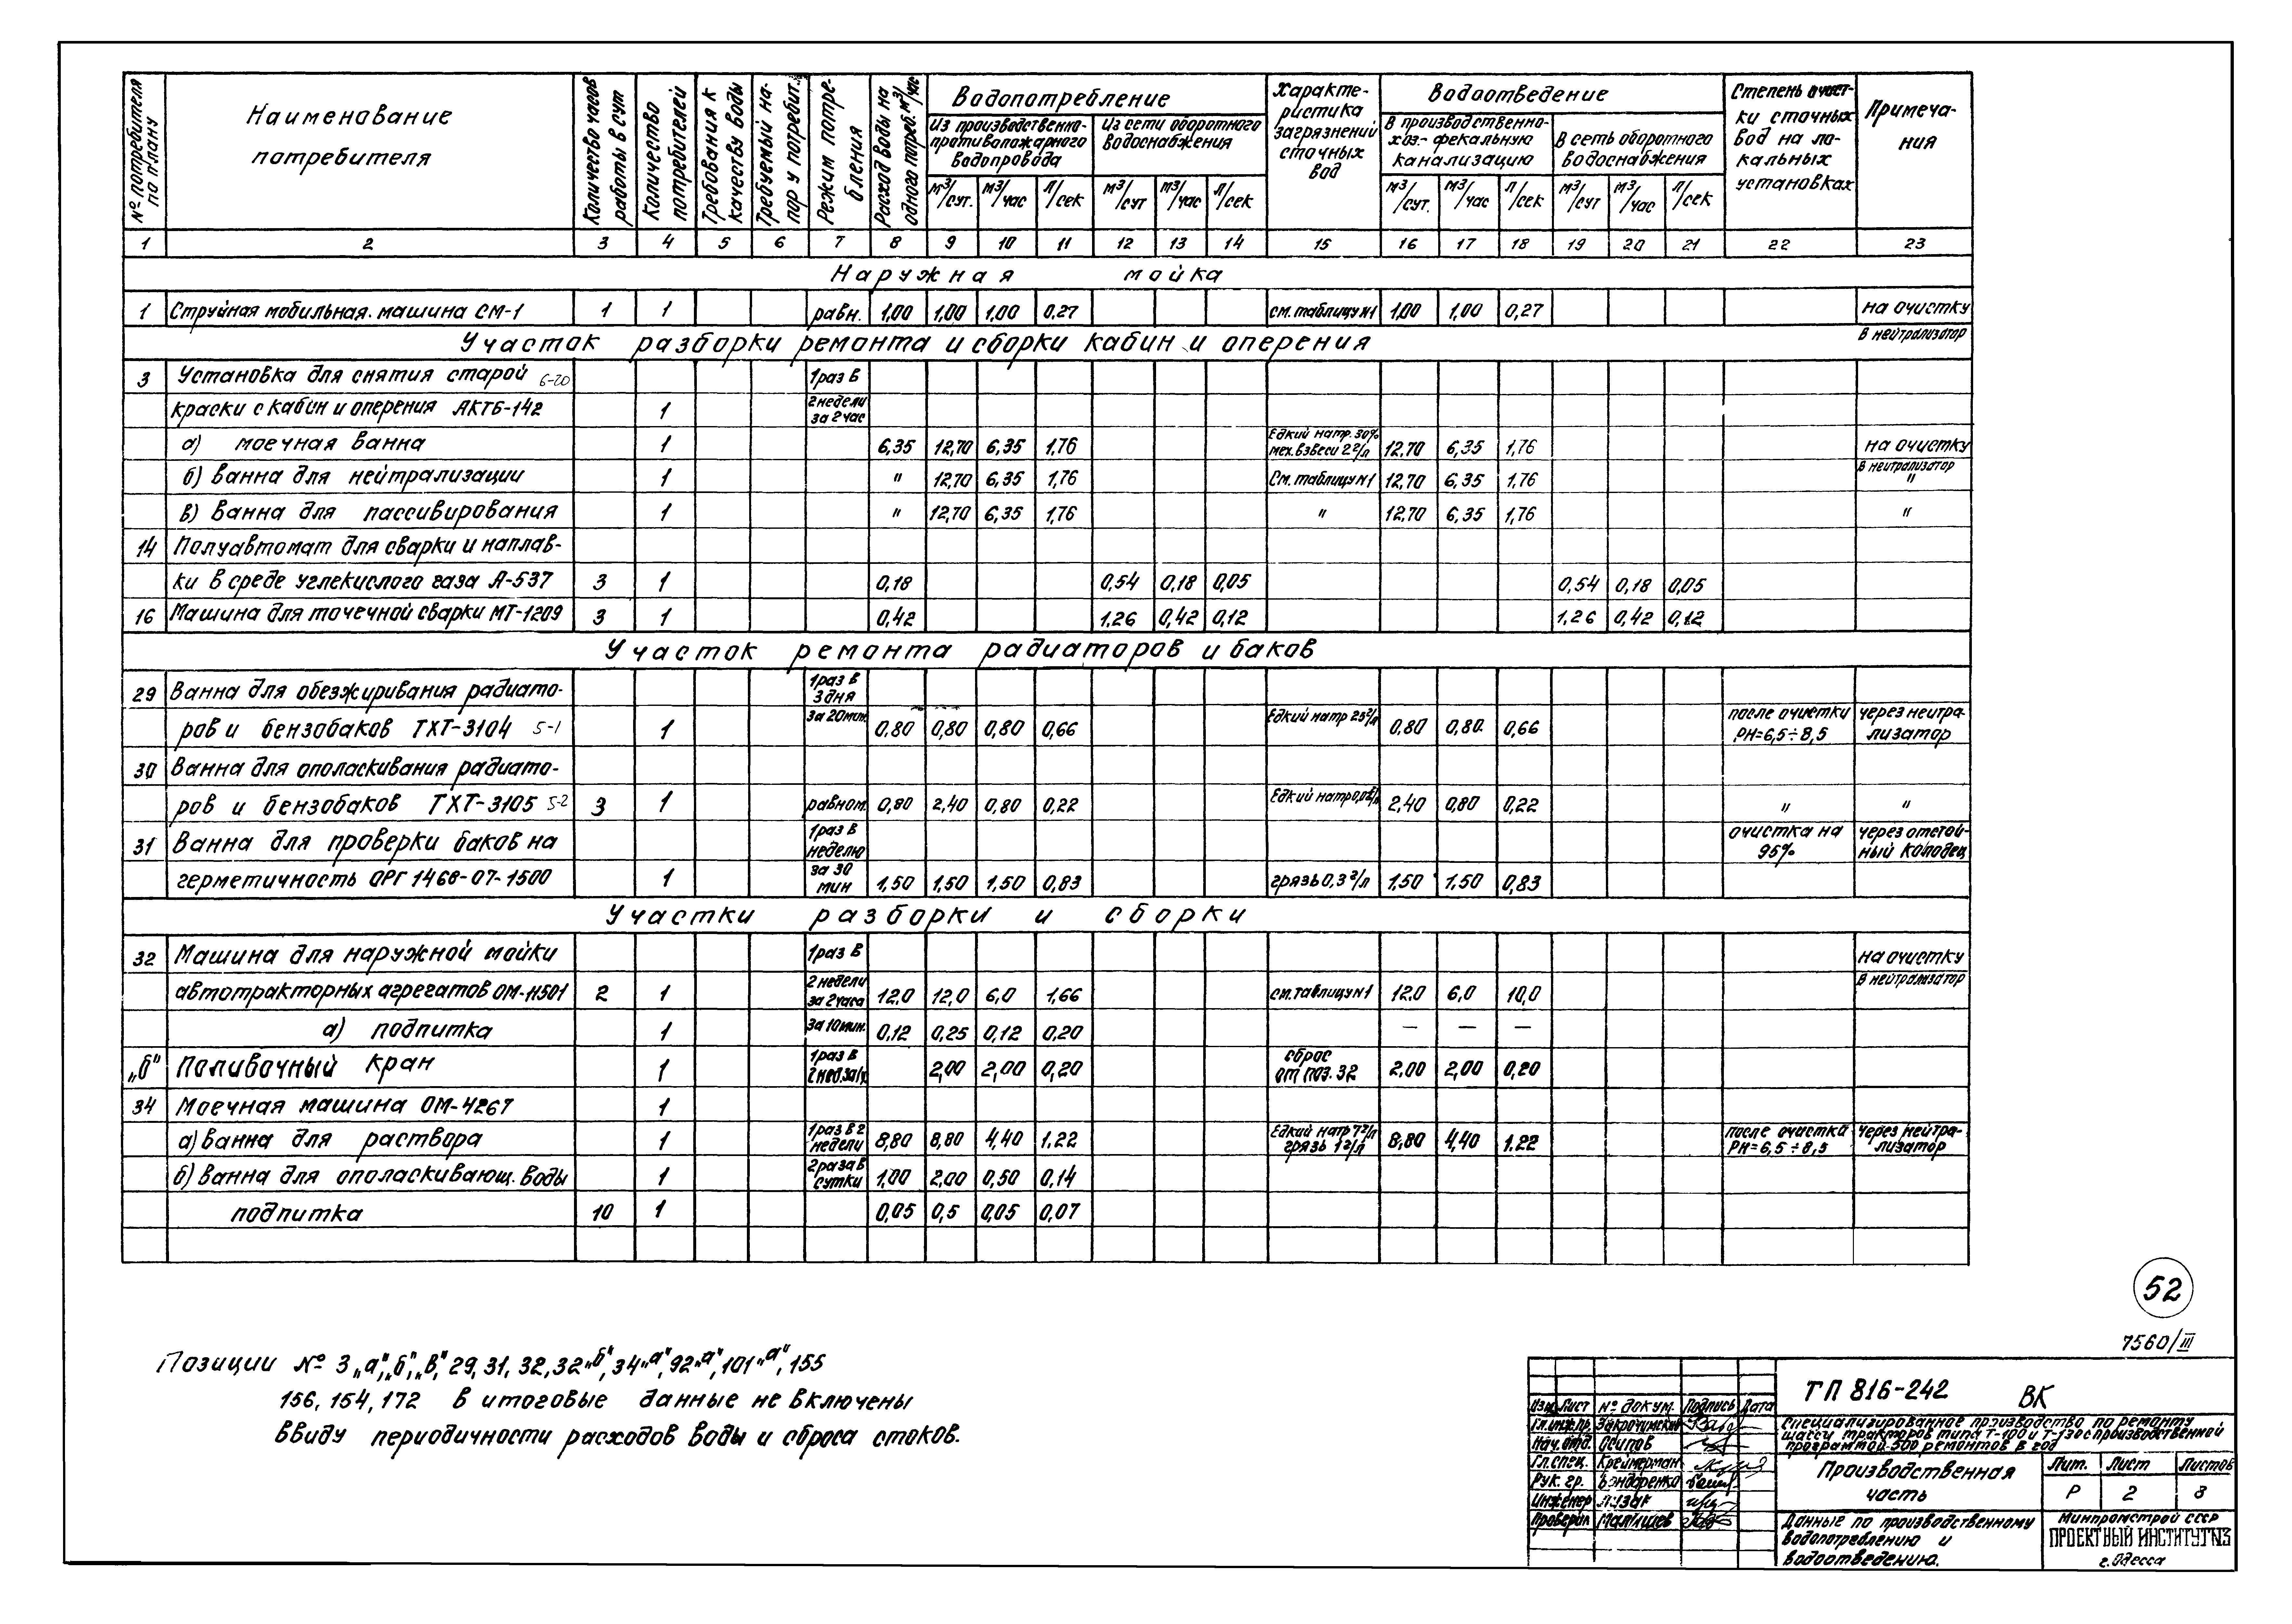 № потребителя по плану
Наименование потребителя
Количество часов работы в сут
Количество потребителей
Требования к качеству воды
Требуемый напор у потребит.
Режим потребления
Расход воды на одного потреб. м³/час
Водопотребление
Из производственно-противопожарного водопровода
Из сети оборотного водоснабжения
Характеристика загрязнений сточных вод
Водоотведение
В производственно-хоз.-фекальную канализацию
В сеть оборотного водоснабжения
Степень очистки сточных вод на локальных установках
Примечания
м³/сут. м³/час л/сек м³/сут м³/час л/сек м³/сут. м³/час л/сек м³/сут м³/час л/сек
1 2 3 4 5 6 7 8 9 10 11 12 13 14 15 16 17 18 19 20 21 22 23
Наружная мойка
1 Струйная мобильная машина СМ-1 1 1 равн. 1,00 1,00 1,00 0,27 см. таблицу №1 1,00 1,00 0,27 на очистку
Участок разборки ремонта и сборки кабин и оперения В нейтрализатор
3 Установка для снятия старой 6-20 1 раз в
краски с кабин и оперения АКТБ-142 1 2 недели за 2 час
а) моечная ванна 1 6,35 12,70 6,35 1,76 Едкий натр. 30% мех. взвеси 2г/л 12,70 6,35 1,76 на очистку
б) ванна для нейтрализации 1 " 12,70 6,35 1,76 См. таблицу №1 12,70 6,35 1,76 В нейтрализатор "
в) ванна для пассивирования 1 " 12,70 6,35 1,76 " 12,70 6,35 1,76 "
14 Полуавтомат для сварки и наплав-
ки в среде углекислого газа А-537 3 1 0,18 0,54 0,18 0,05 0,54 0,18 0,05
16 Машина для точечной сварки МТ-1209 3 1 0,42 1,26 0,42 0,12 1,26 0,42 0,12
Участок ремонта радиаторов и баков
29 Ванна для обезжиривания радиато- 1 раз в 3 дня
ров и бензобаков ТХТ-3104 5-1 1 за 20 мин. 0,80 0,80 0,80 0,66 Едкий натр 25г/л 0,80 0,80 0,66 после очистки РН=6,5÷8,5 через нейтрализатор
30 Ванна для ополаскивания радиато-
ров и бензобаков ТХТ-3105 5-2 3 1 равном. 0,80 2,40 0,80 0,22 Едкий натр 2,40 0,80 0,22 " "
31 Ванна для проверки баков на 1 раз в неделю очистка на 95% через отстой-ный колодец
герметичность ОРГ 1468-07-1500 1 за 30 мин 1,50 1,50 1,50 0,83 грязь 0,3г/л 1,50 1,50 0,83
Участки разборки и сборки
32 Машина для наружной мойки 1 раз в на очистку
автотракторных агрегатов ОМ-11501 2 1 2 недели за 2 часа 12,0 12,0 6,0 1,66 см. таблицу №1 12,0 6,0 10,0 В нейтрализатор
а) подпитка 1 за 10 мин. 0,12 0,25 0,12 0,20 — — —
„б" Поливочный кран 1 1 раз в 2 нед. за 1ч 2,00 2,00 0,20 сброс от поз. 32 2,00 2,00 0,20
34 Моечная машина ОМ-4267 1
а) ванна для раствора 1 1 раз в 2 недели 8,80 8,80 4,40 1.22 Едкий натр 7г/л грязь 1г/л 8,80 4,40 1.22 после очистка РН=6,5÷8,5 через нейтра-лизатор
б) ванна для ополаскивающ. воды 1 2 раза в сутки 1,00 2,00 0,50 0,14
подпитка 10 1 0,05 0,5 0,05 0,07
52
7560/III
Позиции № 3„а",„б",„в", 29, 31, 32, 32„б", 34„а", 92„а", 101„а", 155
156, 154, 172 в итоговые данные не включены
ввиду периодичности расходов воды и сброса стоков.
ТП 816-242 ВК
Изм. Лист № докум. Подпись Дата
Гл. инж. пр.
Нач. отд. Осипов
Гл. спец. Креймерман
Рук. гр. Бондаренко
Инженер
Проверил
Специализированное производство по ремонту
шасси тракторов типа Т-100 и Т-130 с производственной
программой 500 ремонтов в год
Производственная часть
Лит. Лист Листов
Р 2 8
Данные по производственному
водопотреблению и
водоотведению.
Минпромстрой СССР
ПРОЕКТНЫЙ ИНСТИТУТ №3
г. Одесса